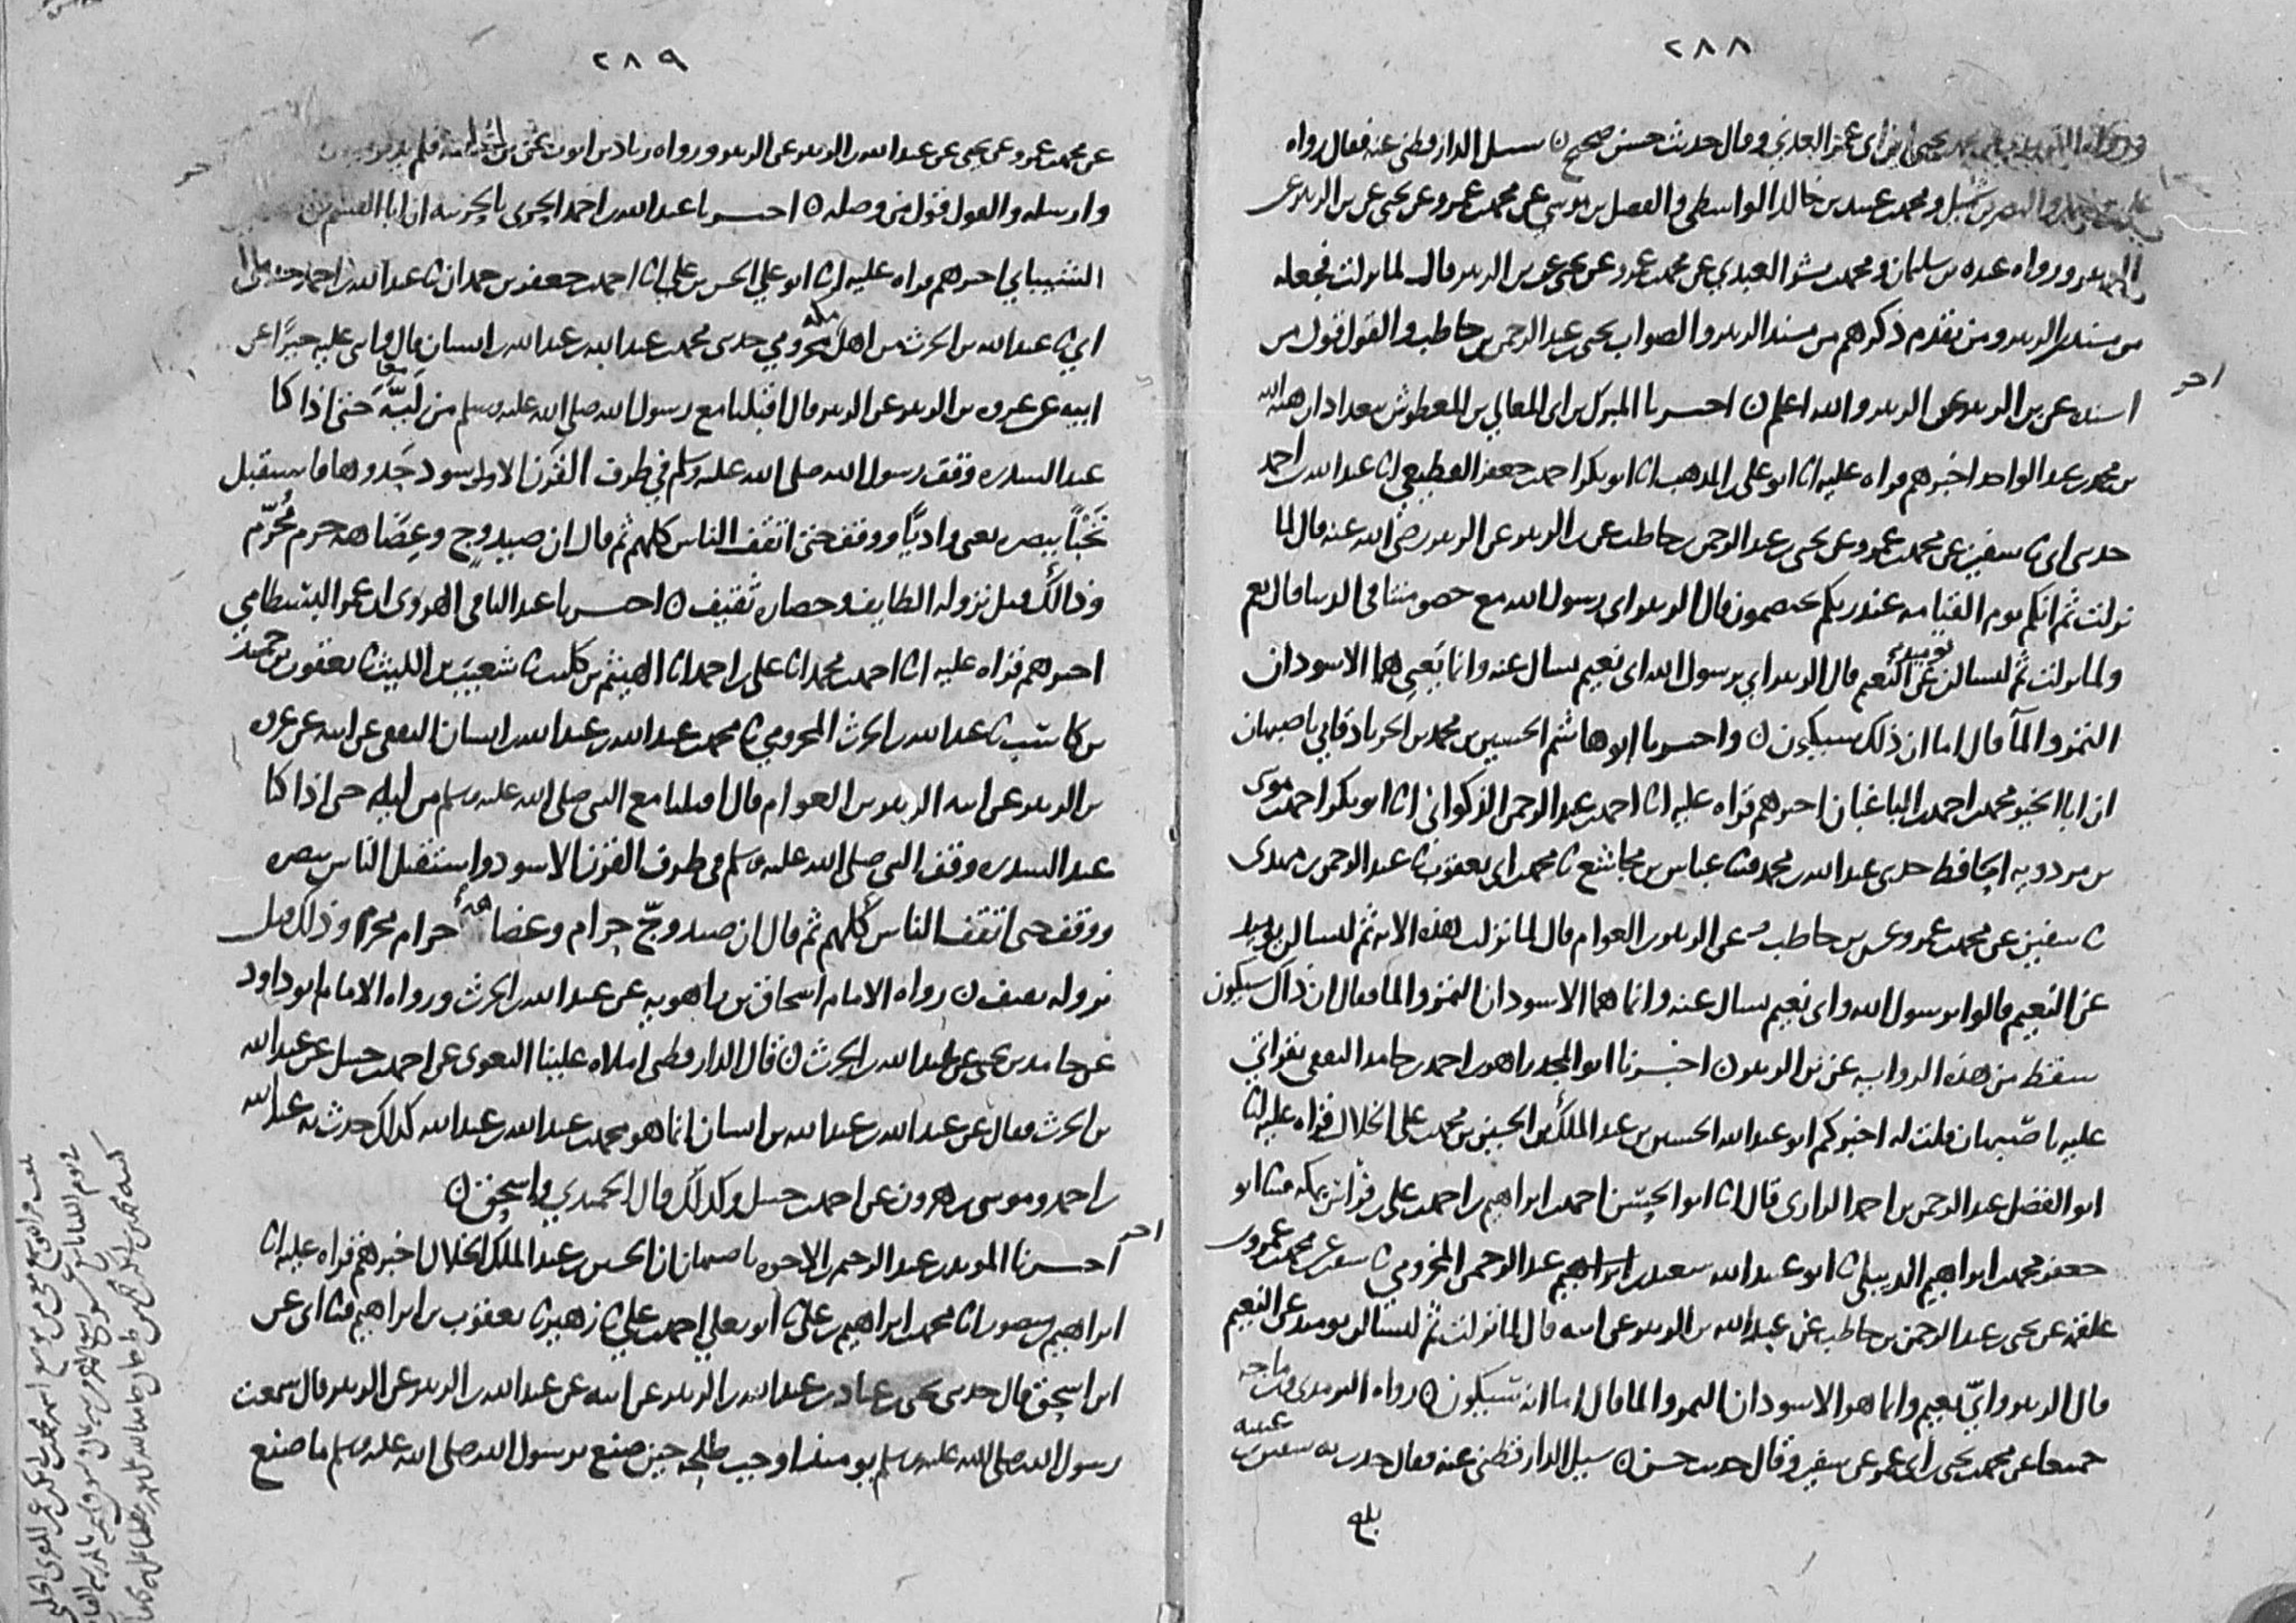 ٢٨٨
يحيى بن ابي عمر العدني وقال حديث حسن صحيح ن سئل الدارقطني عنه فقال رواه
ومحمد بن عبيد بن خالد الواسطي والفضل بن موسى عن محمد بن عمرو عن يحيى عن بن الزبير عن
الزبير ورواه عبدة بن سليمان ومحمد بن بشر العبدي عن محمد بن عمرو عن يحيى عن بن الزبير قال لما نزلت فجعله
من مسند بن الزبير ومن تقدم ذكرهم من مسند الزبير والصواب يحيى بن عبد الرحمن بن حاطب والقول قول من
اسنده عن بن الزبير عن الزبير والله اعلم ن اخبرنا المبرك بن ابي المعالي بن المعطوش ببغداد ان هبة الله
بن محمد بن عبد الواحد اخبرهم قراه عليه انا ابو علي بن المذهب انا ابو بكر احمد بن جعفر القطيعي انا عبد الله بن احمد
حدثني ابي نا سفين عن محمد بن عمرو عن يحيى بن عبد الرحمن بن حاطب عن بن الزبير عن الزبير رضي الله عنه قال لما
نزلت ثم انكم يوم القيامه عند ربكم تختصمون قال الزبير اي رسول الله مع خصومتنا في الدنيا قال نعم
ولما نزلت ثم لتسالن يوميذ عن النعيم قال الزبير اي رسول الله اي نعيم نسال عنه وانما يعني هما الاسودان
التمر والمآ قال اما ان ذلك سيكون ن واخبرنا ابو هاشم الحسين بن محمد بن الجرباذقاني باصبهان
ان ابا الخير محمد بن احمد بن الباغبان اخبرهم قراه عليه انا احمد بن عبد الرحمن الذكواني انا ابو بكر احمد بن موسى
بن مردويه الحافظ حدثني عبد الله بن محمد نا عباس بن مجاشع نا محمد بن ابي يعقوب نا عبد الرحمن بن مهدي
نا سفين عن محمد بن عمرو عن بن حاطب عن الزبير بن العوام قال لما نزلت هذه الايه ثم لتسالن يوميذ
عن النعيم قالوا يرسول الله واي نعيم نسال عنه وانما هما الاسودان التمر والما فقال ان ذاك سيكون
سقط من هذه الروايه عن بن الزبير ن اخبرنا ابو المجد زاهر بن احمد بن حامد الثقفي بقراتي
عليه باصبهان قلت له اخبركم ابو عبد الله الحسين بن عبد الملك بن الحسين بن محمد بن علي الخلال قراه عليه انا
ابو الفضل عبد الرحمن بن احمد الرازي قال انا ابو الحسن احمد بن ابراهيم بن احمد بن علي بن فراس بمكه نا ابو
جعفر محمد بن ابراهيم الديبلي نا ابو عبد الله سعيد بن عبد الرحمن المخزومي نا سفين عن محمد بن عمرو بن
علقمه عن يحيى بن عبد الرحمن بن حاطب عن عبد الله بن الزبير عن ابيه قال لما نزلت ثم لتسالن يوميذ عن النعيم
قال الزبير وايّ نعيم وانما هو الاسودان التمر والما قال اما انه سيكون ن رواه الترمذي وبن ماجه
جميعا عن محمد بن يحيى بن ابي عمر عن سفين وقال حديث حسن ن سئل الدارقطني عنه فقال حدث به سفين بن عيينه
بلغ
٢٨٩
عن محمد بن عمرو عن يحيى عن عبد الله بن الزبير عن الزبير ورواه زياد بن ايوب عن بن
وارسله والقول قول من وصله ن اخبرنا عبد الله بن احمد الحربي بالحربيه ان ابا القسم بن
الشيباني اخبرهم قراه عليه انا ابو علي الحسن بن علي انا احمد بن جعفر بن حمدان نا عبد الله بن احمد حدثني
ابي نا عبد الله بن الحرث من اهل مكه مخزومي حدثني محمد بن عبد الله بن عبد الله بن انسان قال واثنى عليه خيرًا عن
ابيه عن عروه بن الزبير عن الزبير قال اقبلنا مع رسول الله صلى الله عليه وسلم من لِيَّة حتى اذا كنا
عند السدره وقف رسول الله صلى الله عليه وسلم في طرف القرن الاسود حذوها فاستقبل
نَخْبًا ببصره يعني واديًا ووقف حتى اتقف الناس كلهم ثم قال ان صيد وج وعِضَاهه حرم مُحَرَّم
وذالك قبل نزوله الطايف وحصاره ثقيف ن اخبرنا عبد الباقي الهروي ان عمر البسطامي
اخبرهم قراه عليه انا احمد بن محمد انا علي بن احمد انا الهيثم بن كليب نا شعيب بن الليث نا يعقوب بن حميد
بن كاسب نا عبد الله بن الحرث المخزومي نا محمد بن عبد الله بن عبد الله بن انسان الثقفي عن ابيه عن عروه
بن الزبير عن ابيه الزبير بن العوام قال اقبلنا مع النبي صلى الله عليه وسلم من ليه حتى اذا كنا
عند السدره وقف النبي صلى الله عليه وسلم في طرف القرن الاسود واستقبل الناس ببصره
ووقف حتى اتقف الناس كلهم ثم قال ان صيد وجّ حرام وعضاهه حرام محرم وذلك قبل
نزوله بثقيف ن رواه الامام اسحاق بن راهويه عن عبد الله بن الحرث ورواه الامام ابو داود
عن حامد بن يحيى عن عبد الله بن الحرث ن قال الدارقطني املاه علينا البغوي عن احمد بن حنبل عن عبد الله
بن الحرث فقال عن عبد الله بن عبد الله بن انسان انما هو محمد بن عبد الله بن عبد الله كذلك حدث به عبد الله
بن احمد وموسى بن هرون عن احمد بن حنبل وكذلك قال الحميدي واسحق ن
اخبرنا المويد بن عبد الرحيم بن الاخوه باصبهان ان الحسين بن عبد الملك الخلال اخبرهم قراه عليه انا
ابراهيم بن منصور انا محمد بن ابراهيم بن علي نا ابو يعلى احمد بن علي نا زهير نا يعقوب بن ابراهيم نا ابي عن
ابن اسحق قال حدثني يحيى بن عباد بن عبد الله بن الزبير عن ابيه عن عبد الله بن الزبير عن الزبير قال سمعت
رسول الله صلى الله عليه وسلم يوميذ اوجب طلحه حين صنع برسول الله صلى الله عليه وسلم ما صنع